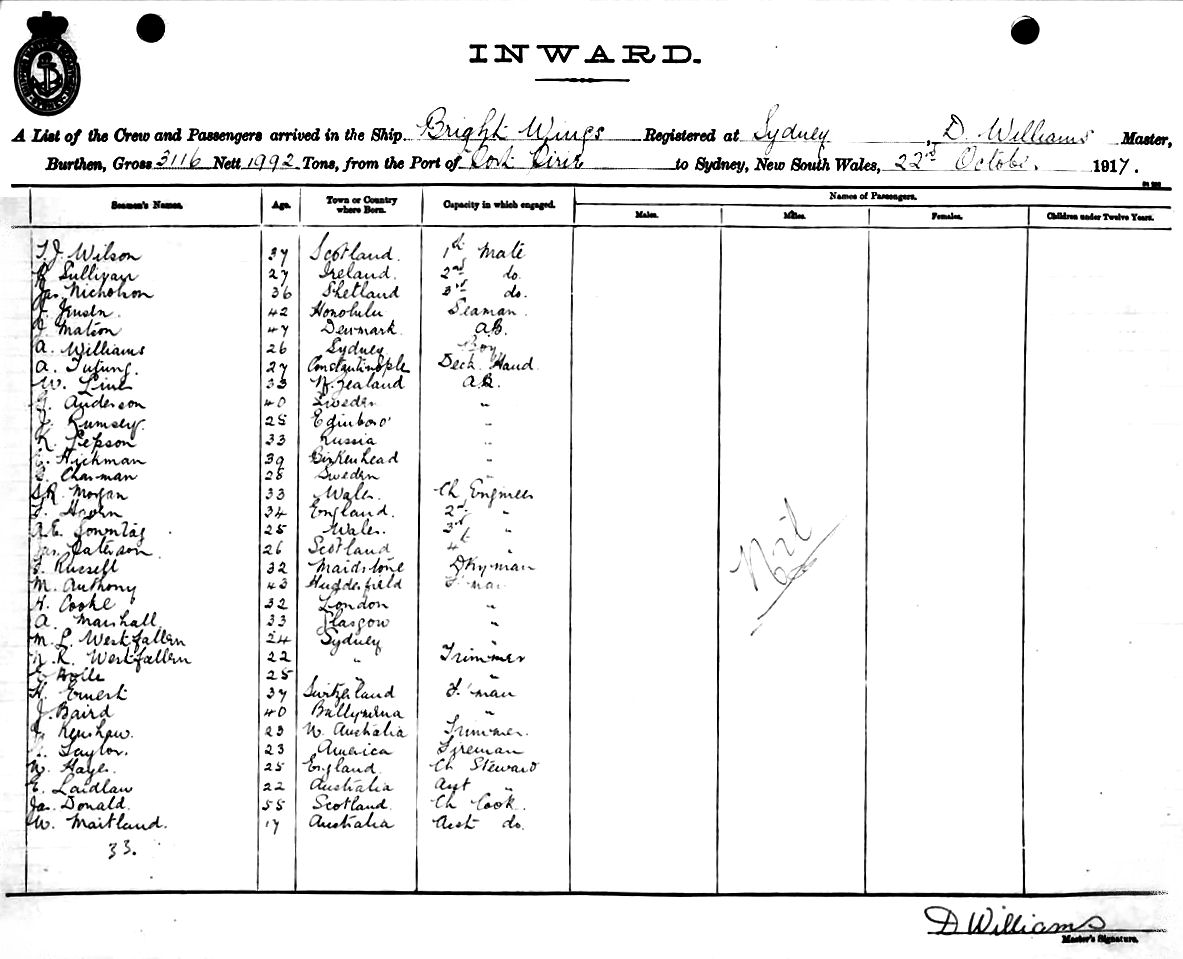 INWARD.
A List of the Crew and Passengers arrived in the Ship Bright Wings Registered at Sydney, D. Williams Master,
Burthen, Gross 3116 Nett 1992 Tons, from the Port of Port Pirie to Sydney, New South Wales, 22nd October 1917.
Seamen's Names. Age. Town or Country where Born. Capacity in which engaged. Names of Passengers.
Males. Females. Children under Twelve Years.
T.J. Wilson 37 Scotland. 1st Mate
Sullivan 27 Ireland. 2nd do.
Jas Nicholson 36 Shetland 3rd do.
42 Honolulu Seaman.
Matson 47 Denmark. A.B.
A. Williams 26 Sydney Boy
A. 27 Constantinople Deck Hand.
W. 33 N. Zealand A.B.
Anderson 40 Sweden "
J. Rumsey. 25 Edinboro' "
K. Jepson 33 Russia "
Hickman 39 Birkenhead "
Charman 28 Sweden "
S.R. Morgan 33 Wales. Ch Engineer
34 England. 2nd "
A.E. Sonntag 25 Wales. 3rd "
Jas Paterson 26 Scotland 4th "
Russell 32 Maidstone Dkyman
M. Anthony 43 Hudderfield F'man
H. Cooke 32 London "
A. Marshall 33 Glasgow "
M. L. Westfallen 24 Sydney "
N. K. Westfallen 22 " Trimmer
25 " "
H. Ernest 37 Switzerland F'man
J. Baird 40 Ballymena "
Kenshaw. 23 W. Australia Trimmer.
Taylor. 23 America Fireman
Hayes. 25 England Ch Steward
E. Laidlaw 22 Australia Asst "
Jas. Donald. 55 Scotland. Ch Cook.
W. Maitland. 17 Australia Asst do.
33.
Nil
D Williams
Master's Signature.